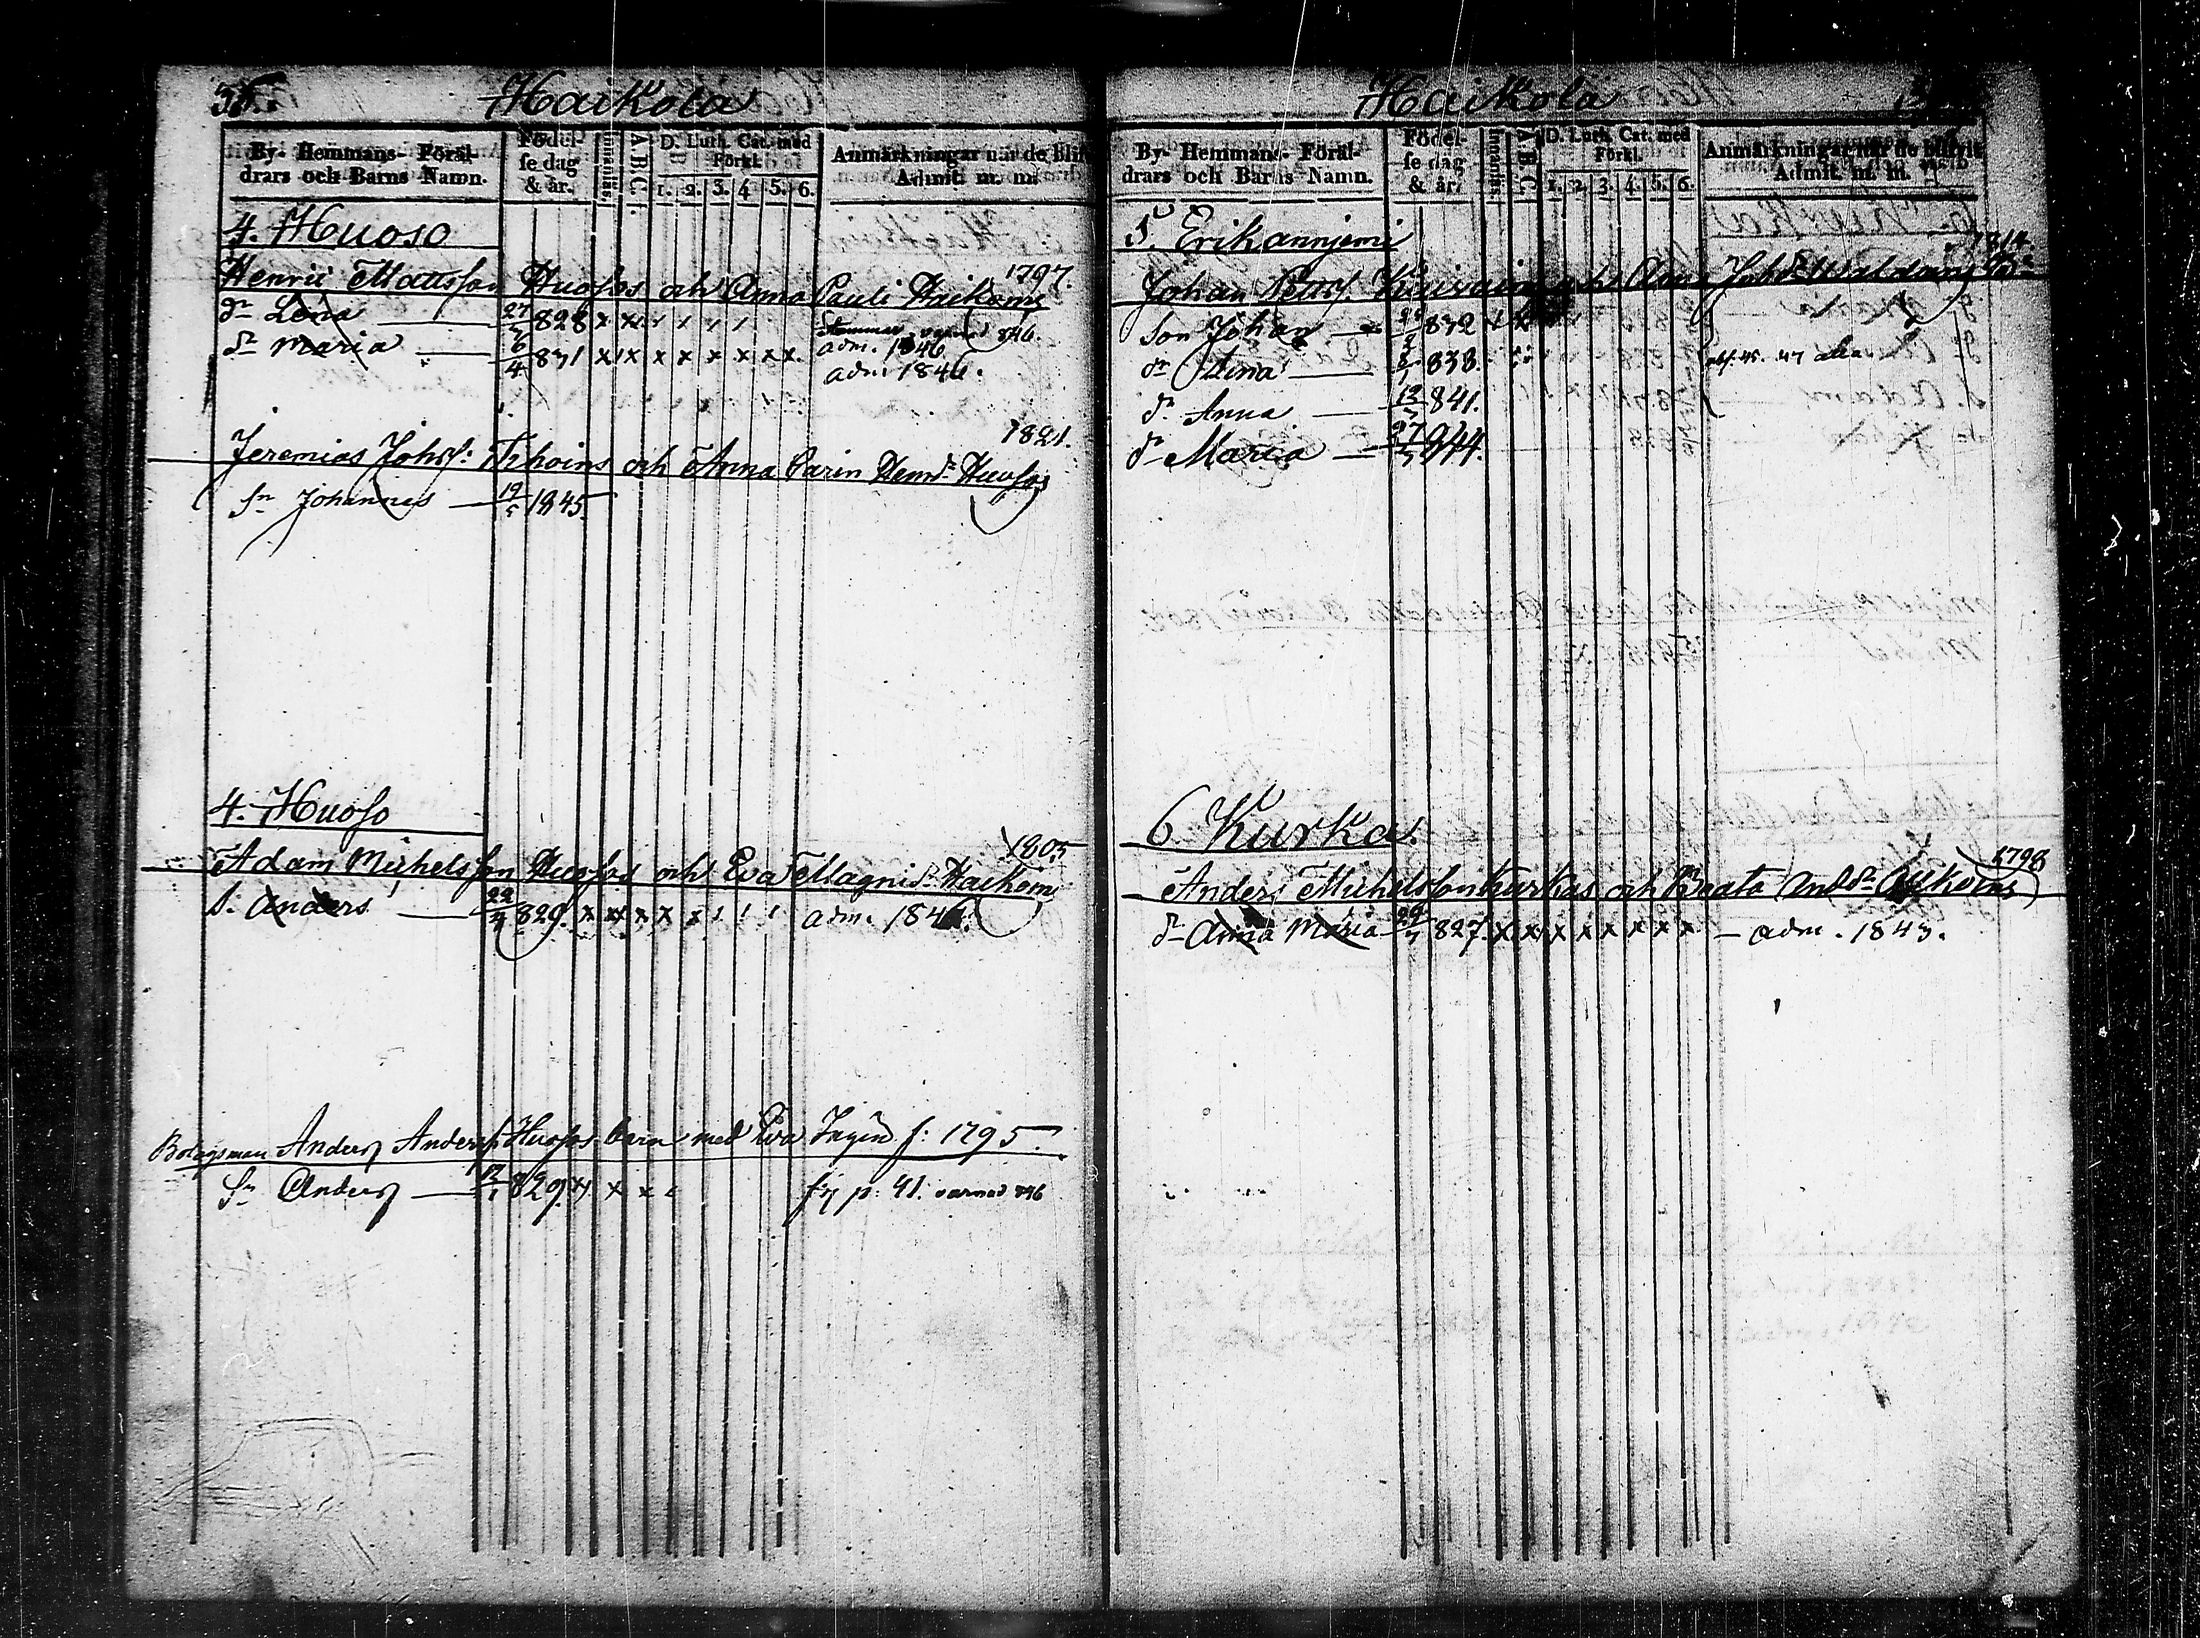 Haikola
By- Hemmans- Föräl-
drars och Barns Namn.
Födel-
se dag
& år.
Innanläs.
A B C.
D. Luth. Cat. med
Förkl.
1. 2. 3. 4. 5. 6.
Anmärkningar när de blif
Admit. m. m.
4. Huoso
1797.
Henric Mattsson Huosos och Anna Pauli Haikoms
dr Lena 27/7 828 x x
varnad 846.
adm. 1846
dr Maria 6/4 831 x x x x x x x x
adm. 1846.
1821.
Jeremias Johss: och Anna Carin Henrdr Huosos
Sn Johannes 19/5 1845.
4. Huoso
1805
Adam Michelsson Huosos och Eva Magnidr Haikom
S. Anders 22/4 829. x x x x x adm. 1846.
Bolagsman Anders Anderss. Huosos barn med Eva f: 1795.
Sn Anders 12/1 829 x x x fr p: 41. varnad 846
Haikola
By- Hemmans- Föräl-
drars och Barns Namn.
Födel-
se dag
& år.
Innanläs.
A B C.
D. Luth. Cat. med
Förkl.
1. 2. 3. 4. 5. 6.
Anmärkningar när de blifvit
Admit. m. m.
5. Erikannjemi
1814.
Johan Petterss. och Anna Johdr
Son Johan 832
dr Stina 838.
45. 47
dr Anna 13/3 841.
dr Maria 27/3 844.
6 Kurkas.
1798
Anders Michelsson Kurkas och Beata Anddr
dr Anna Maria 29/7 827. x x x x x x x x – adm. 1843.